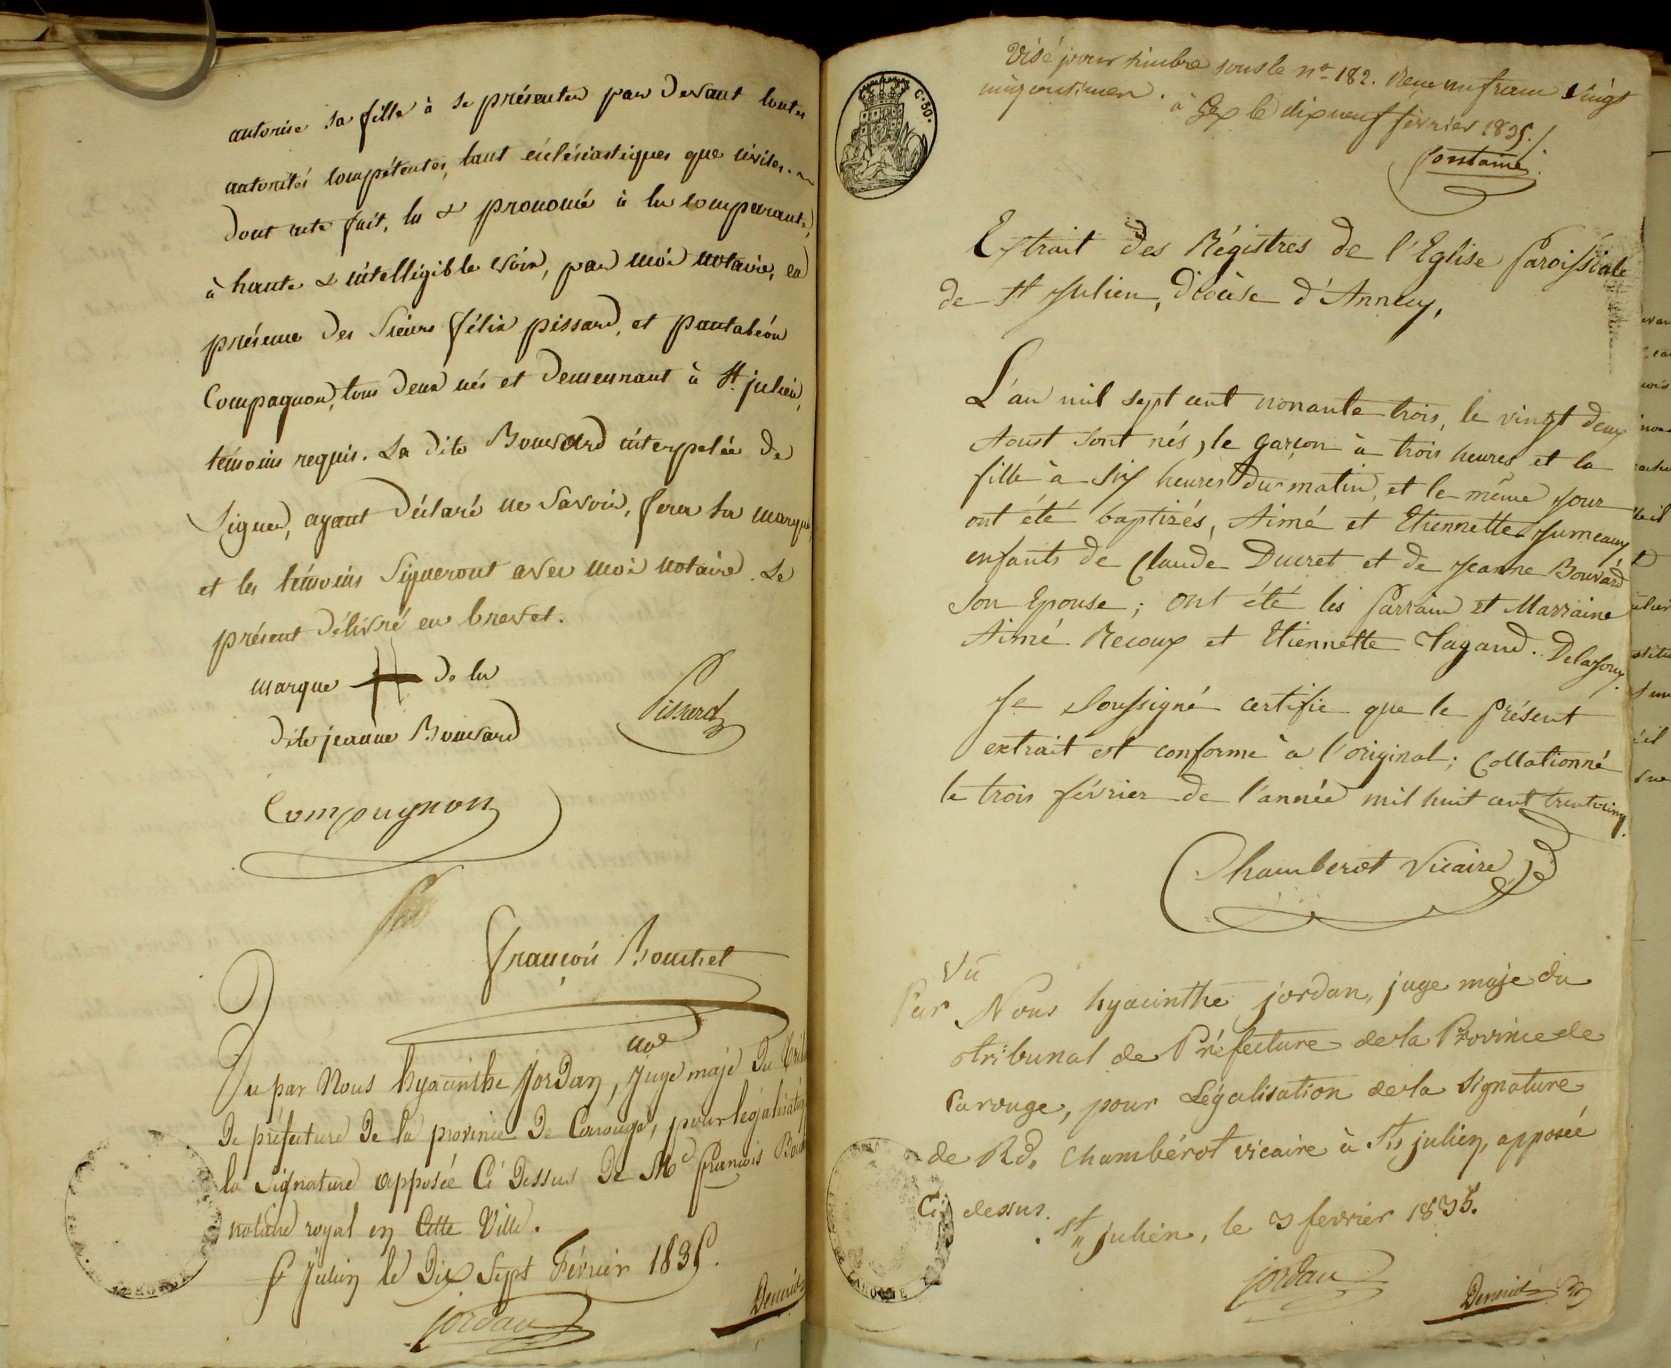 autorise sa fille à se présenter par devant toutes
autorités compétentes, tant écclésiastiques que civiles.
Dont acte fait, lu & prononcé à la comparante,
à haute & intelligible voix, par moi notaire, en
présence des Sieurs félix pissard, et pantaléon
Compagnon, tous deux nés et demeurant à St. julien,
témoins requis. La dite Bouvard interpelée de
signer, ayant déclaré ne savoir, fera sa marque
et les témoins signeront avec moi notaire. Le
présent délivré en brevet.
marque de la
dite jeanne Bouvard
Pissard
Compagnon
François Bouchet
not
Vu par Nous hyacinthe Jordan, Juge maje du
De préfecture De la province De Carouge, pour légalisation
la signature apposée Ci Dessus De Me françois
notaire royal en Cette Ville.
St Julien le Dix Sept Février 1835.
jordan
C. 50.
Visé pour timbre sous le no. 182. Reçu un franc vingt
cinq centimes. à Gex le dix neuf février 1835.
Fontaine
Extrait des Régistres de l'Eglise Paroissiale
de St Julien, Diocèse d'Annecy,
L'an mil sept cent nonante trois, le vingt deux
Aoust sont nés, le garçon à trois heures et la
fille à six heures du matin, et le même jour
ont été baptizés, Aimé et Etiennette Jumeaux
enfants de Claude Ducret et de Jeanne Bouvard
son Epouse; ont été les Parrain et Marraine
Aimé Recoux et Etiennette Tagand.
Je soussigné certifie que le présent
extrait est conforme à l'original; Collationné
le trois février de l'année mil huit cent trente cinq.
Chamberot Vicaire
Vu
Par Nous hyacinthe jordan, juge maje du
tribunal de Préfecture de la Province de
Carouge, pour Légalisation de la signature
de Rd. Chambérot vicaire à St julien, apposée
Ci dessus.
St julien, le 3 fevrier 1835.
jordan